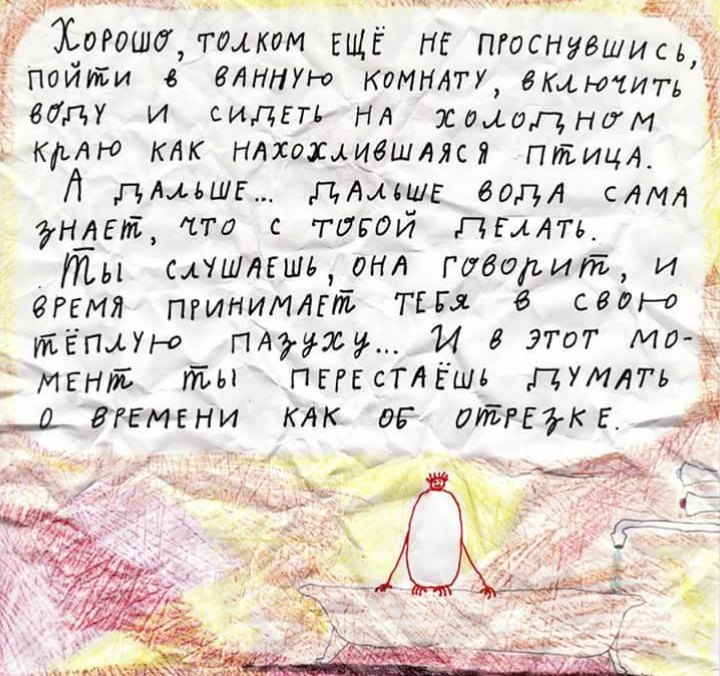 Хорошо, толком ещё не проснувшись,
пойти в ванную комнату, включить
воду и сидеть на холодном
краю как нахохлившаяся птица.
А дальше... дальше вода сама
знает, что с тобой делать.
Ты слушаешь, она говорит, и
время принимает тебя в свою
тёплую пазуху... И в этот мо-
мент ты перестаёшь думать
о времени как об отрезке.